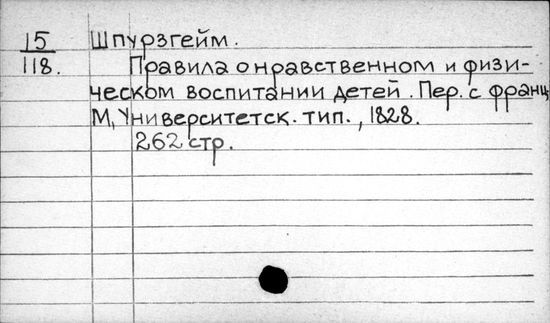 15 Шпурзгейм.
118. Правила о нравственном и физи-
ческом воспитании детей. Пер. с франц
М, Университетск. тип., 1828.
262 стр.